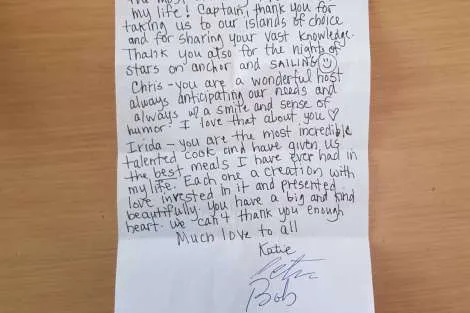 my life! Captain, thank you for
taking us to our islands of choice
and for sharing your vast knowledge.
Thank you also for the nights of
stars on anchor and SAILING
Chris - you are a wonderful host
always anticipating our needs and
always w/ a smile and sense of
humor! I love that about you ♡
Irida - you are the most incredible
talented cook and have given us
the best meals I have ever had in
my life. Each one a creation with
love invested in it and presented
beautifully. You have a big and kind
heart. We can't thank you enough
Much love to all
Katie
Bob